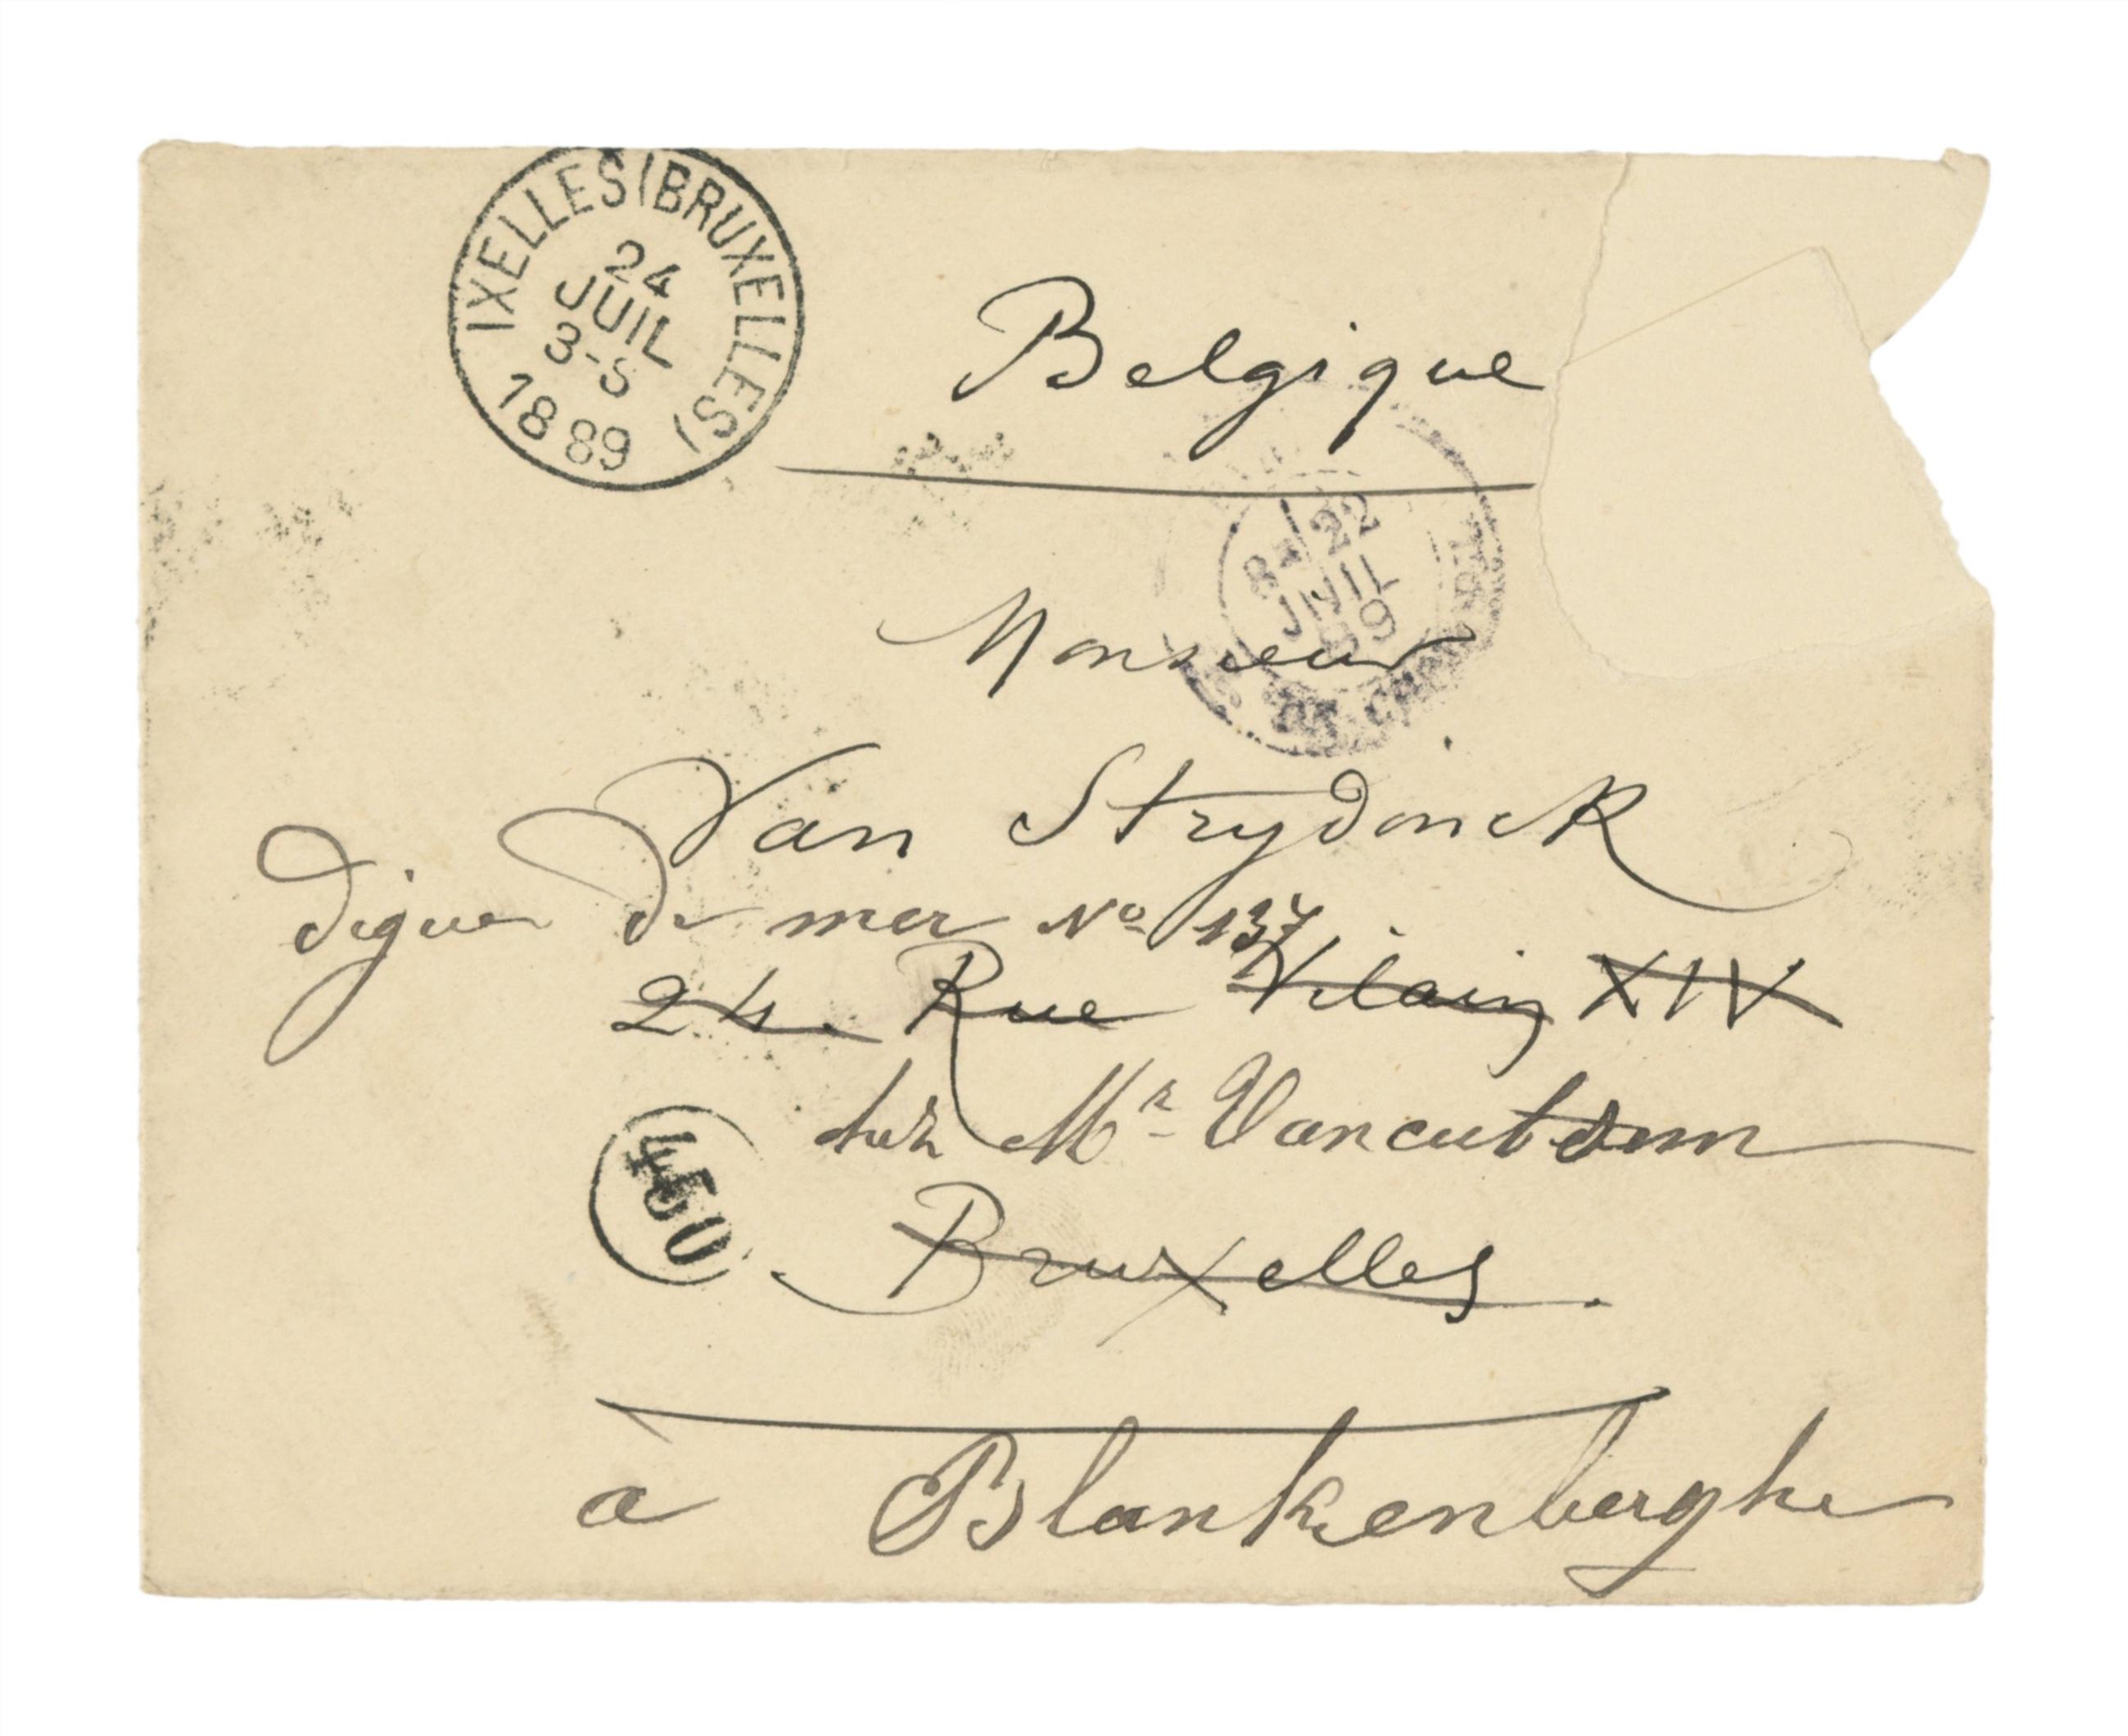 IXELLES (BRUXELLES)
24
JUIL
3-S
1889
Belgique
22
JUIL
89
Monsieur
Van Strydonck
digue de mer No 137
24. Rue Vilain XIV
chez Mr Vancutsem
450
Bruxelles.
à Blankenberghe